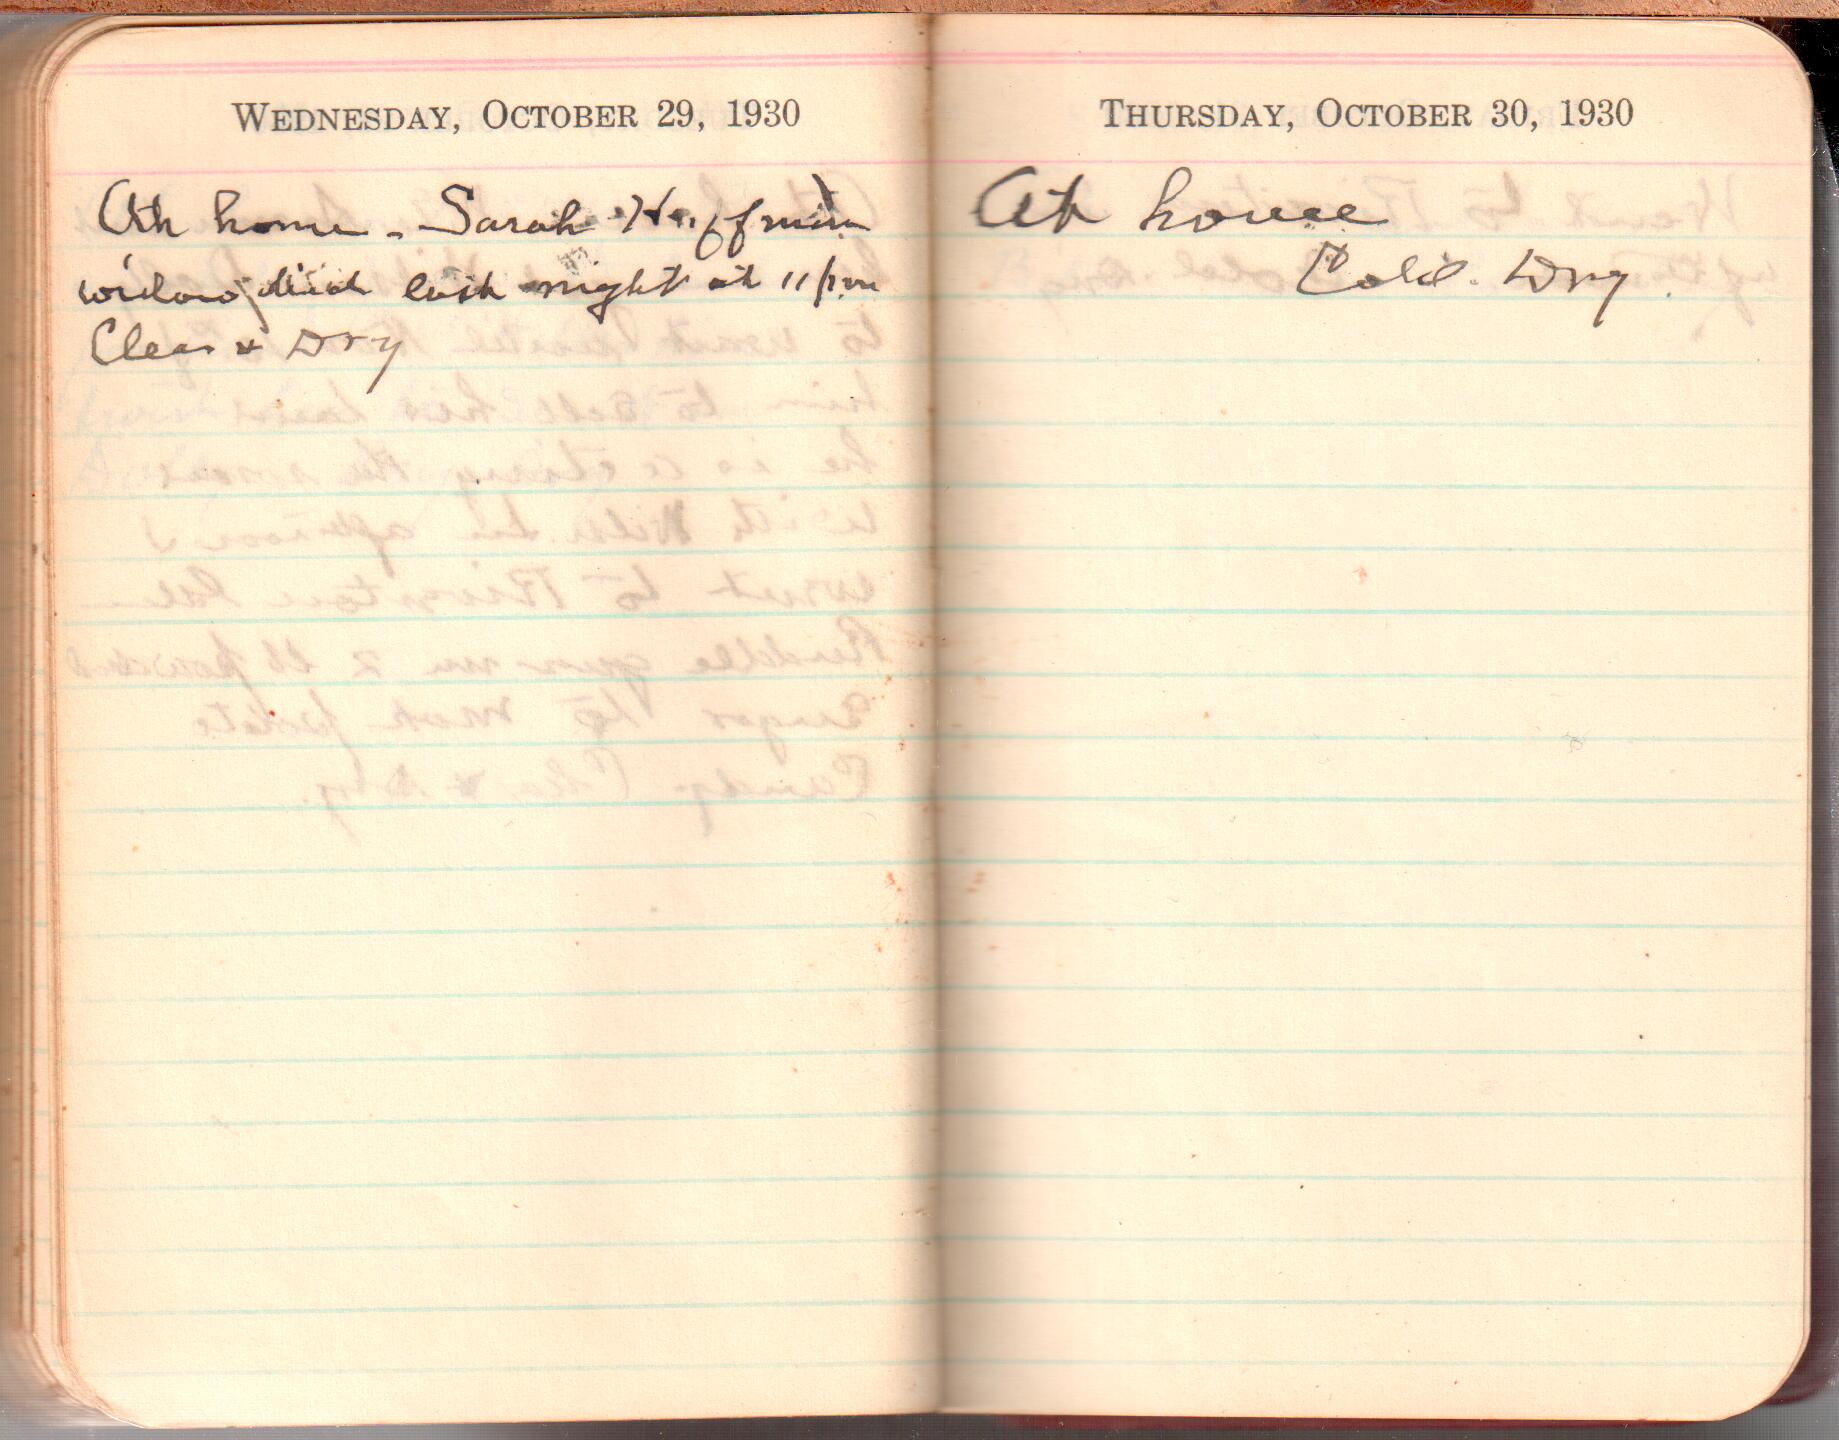 WEDNESDAY, OCTOBER 29, 1930
At home - Sarah Huffman
widow died last night at 11 pm
Clear & Dry
THURSDAY, OCTOBER 30, 1930
At house
Cold. Dry.